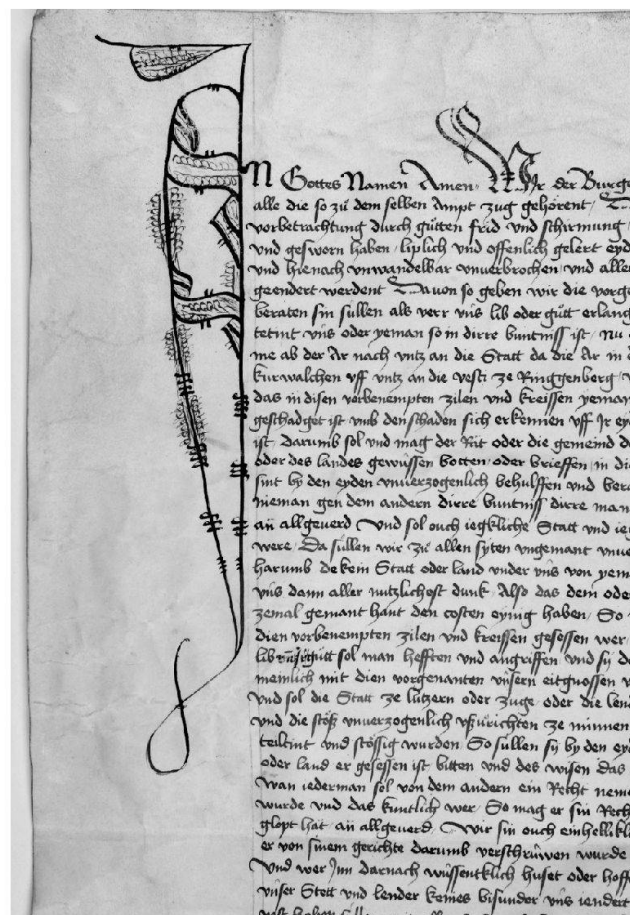 In Gottes Namen Amen. Wir der Burge
alle die so zů dem selben Ampt zug gehörent
vorbetrachtung durch gůtten frid vnd schirmung
vnd gesworn haben liplich vnd offenlich gelert eyd
vnd hienach vnwandelbar vnuerbrochen vnd aller
geendert werdent Davon so geben wir die vorge
beraten sin süllen als verr vns lib oder gůtt erlang
oder yeman so in dirre buntniss ist nu
me ab der Ar nach vntz an die Statt da die Ar in d
kurwalchen vff vntz an die vesti ze Ringgenberg
das in disen vorbenempten zilen vnd kreissen yeman
geschadget ist vmb den schaden sich erkennen vff Ir ey
ist darumb sol vnd mag der Rät oder die gemeind d
oder des landes gewüssen botten oder brieffen in di
sint by den eyden vnuerzogenlich behulffen vnd bera
nieman gen dem andern dirre buntniss dirre man
an allgeuerd Vnd sol ouch iegkliche Statt vnd ie
were Da süllen wir zů allen syten vngemant vnue
harumb dekein Statt oder land vnder vns von yem
vns dann aller nutzlichest dunk Also das dem ode
zemal gemant hant den costen eynig haben So
dien vorbenempten zilen vnd kreissen gesessen wer
lib gůtt sol man hefften vnd angriffen vnd sy d
meinlich mit dien vorgenanten vnsern eitgnossen
vnd sol die Statt ze lutzern oder zuge oder die len
vnd die stöss vnuerzogenlich vszürichten ze minnen
teiltint vnd stössig wurden So süllen sy by den ey
oder land er gesessen ist bitten vnd des wisen das
wan iederman sol von dem andern ein Recht neme
wurde vnd das kuntlich wer So mag er sin Rech
glopt hat an allgeuerd Wir sin ouch einhellikli
er von sinem gerichte darumb verschrüwen wurde
Vnd wer Inn darnach wüssentklich huset oder hoff
vnser Stett vnd lender keines bisunder vns iendert